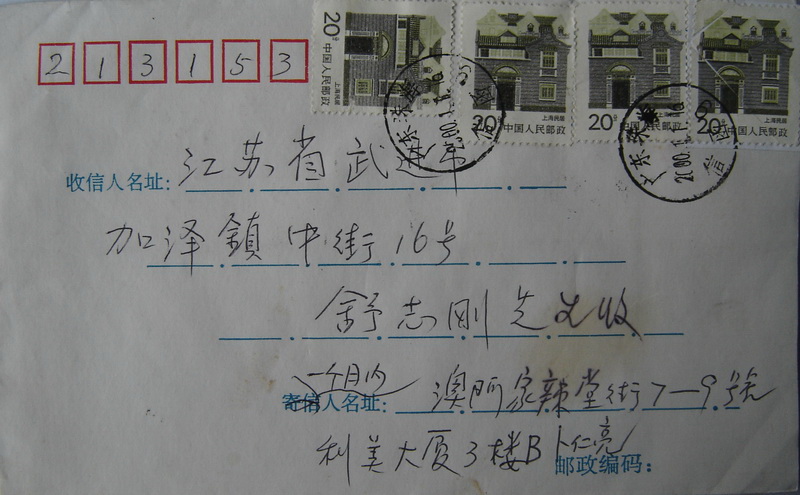 213153
20分 中国人民邮政 上海民居
20分 中国人民邮政 上海民居
20分 中国人民邮政 上海民居
20分 中国人民邮政 上海民居
收信人名址: 江苏省武进市
加泽鎮中街16号
舒志刚先生收
一个月内
寄信人名址: 澳门家辣堂街7—9號
利美大厦3楼B 卜仁亮
邮政编码: